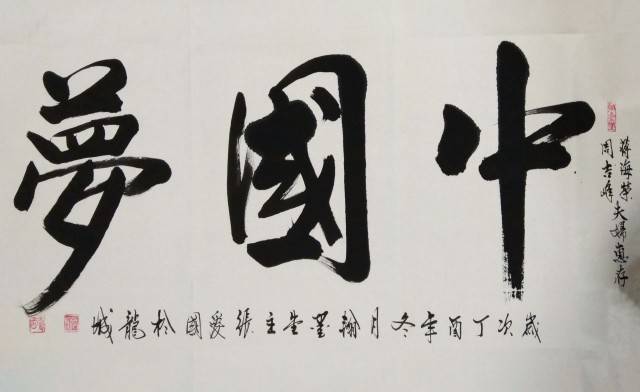 蔣海榮
周吉峰
夫婦惠存
中國夢
歲次丁酉年冬月翰墨堂主張愛國松龍城